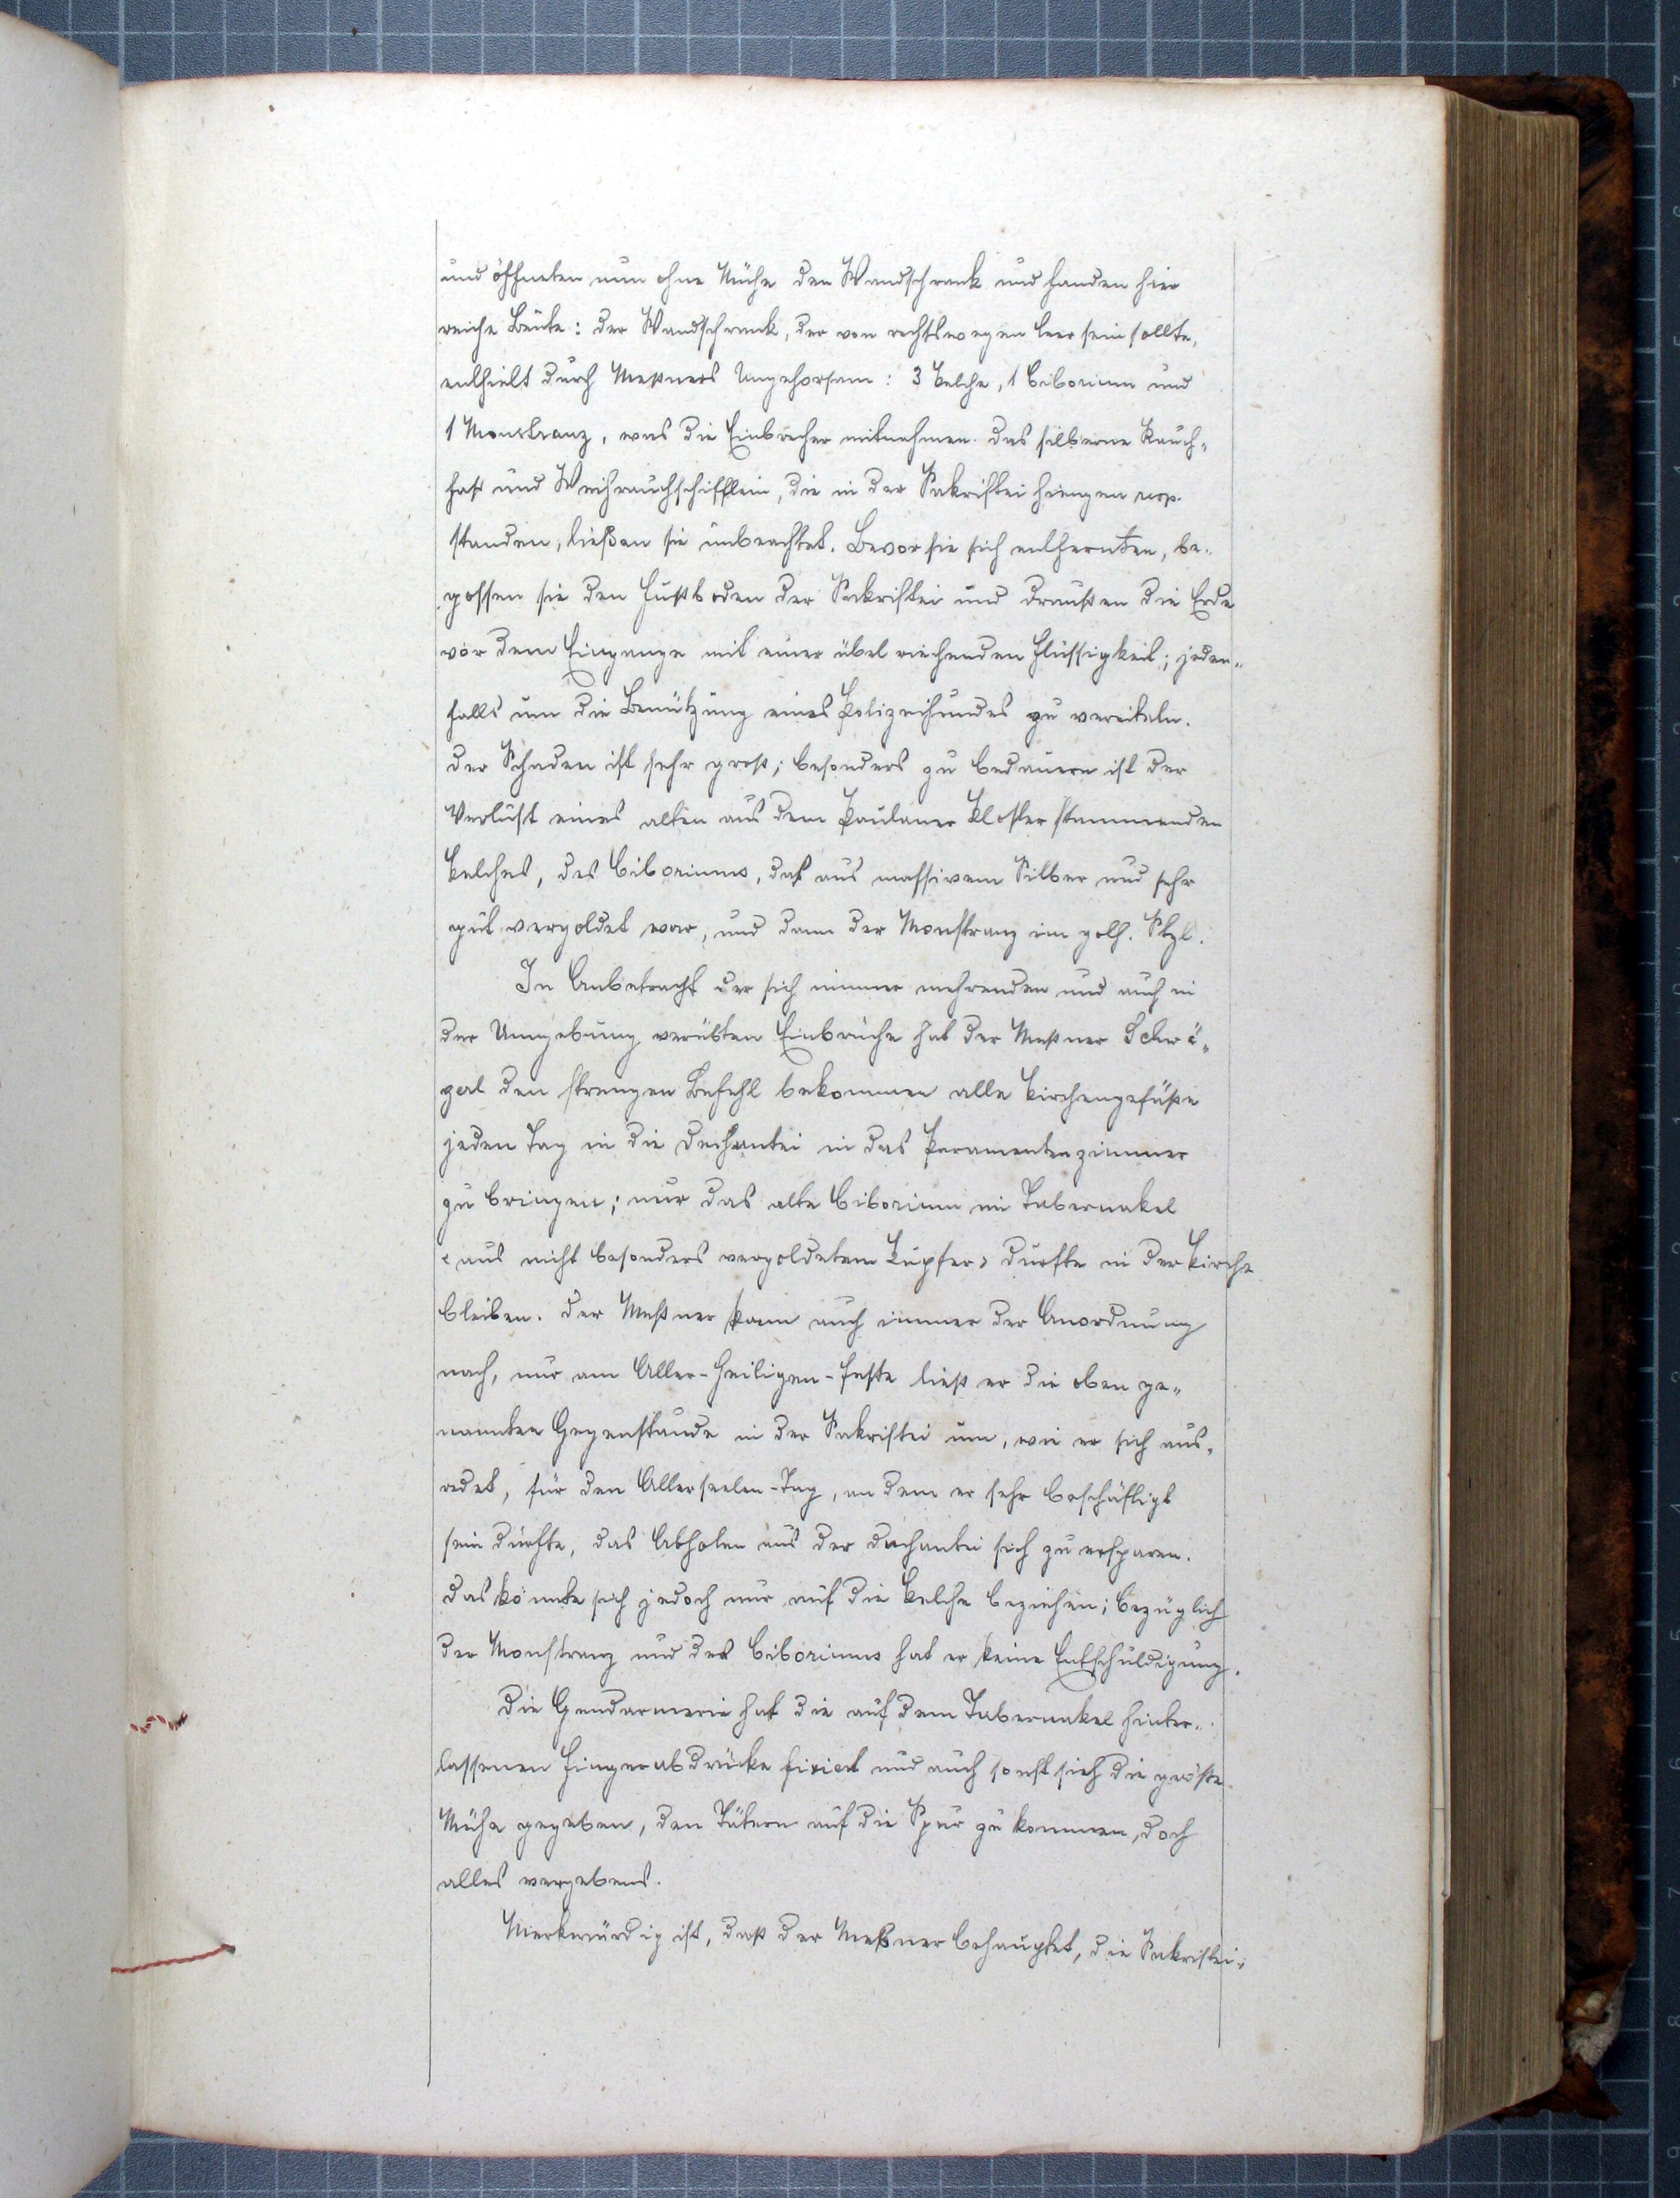 und öffneten nun ohne Mühe den Wandschrank und fanden hier
reiche Beute: der Wandschrank, der von rechtswegen leer sein sollte,
enthielt durch Meßners Ungehorsam: 3 Kelche, 1 Ciborium und
1 Monstranz, was die Einbrecher mitnahmen. Das silberne Rauch„
faß und Weihrauchschifflein, die in der Sakristei hiengen resp.
standen, ließen sie unbeachtet. Bevor sie sich entfernten, be„
gossen sie den Fußboden der Sakristei und draußen die Erde
vor dem Eingange mit einer übel riechenden Flüssigkeit; jeden„
falls um die Benützung eines Polizeihundes zu vereiteln.
Der Schaden ist sehr groß; besonders zu bedauern ist der
Verlust eines alten aus dem Paulaner Kloster stammenden
Kelches, des Ciboriums, das aus massivem Silber und sehr
gut vergoldet war, und dann der Monstranz im goth. Styl.
In Anbetracht der sich immer mehrenden und auch in
der Umgebung verübten Einbrüche hat der Meßner Schwä„
gerl den strengen Befehl bekommen alle Kirchengefäße
jeden Tag in die Dechantei in das Paramentenzimmer
zu bringen; nur das alte Ciborium im Tabernakel
(aus nicht besonders vergoldetem Kupfer) durfte in der Kirche
bleiben. Der Meßner kam auch immer der Anordnung
nach, nur am Aller-Heiligen-Feste ließ er die oben ge„
nannten Gegenstände in der Sakristei um, wie er sich aus„
redet, für den Allerseelen-Tag, an dem er sehr beschäftigt
sein dürfte, das Abholen aus der Dechantei sich zu ersparen.
Das könnte sich jedoch nur auf die Kelche beziehen; bezüglich
der Monstranz und des Ciboriums hat er keine Entschuldigung.
Die Gendarmerie hat die auf dem Tabernakel hinter„
lassenen Fingerabdrücke fixiert und auch sonst sich die größte
Mühe gegeben, den Tätern auf die Spur zu kommen, doch
alles vergebens.
Merkwürdig ist, daß der Meßner behauptet, die Sakristei„